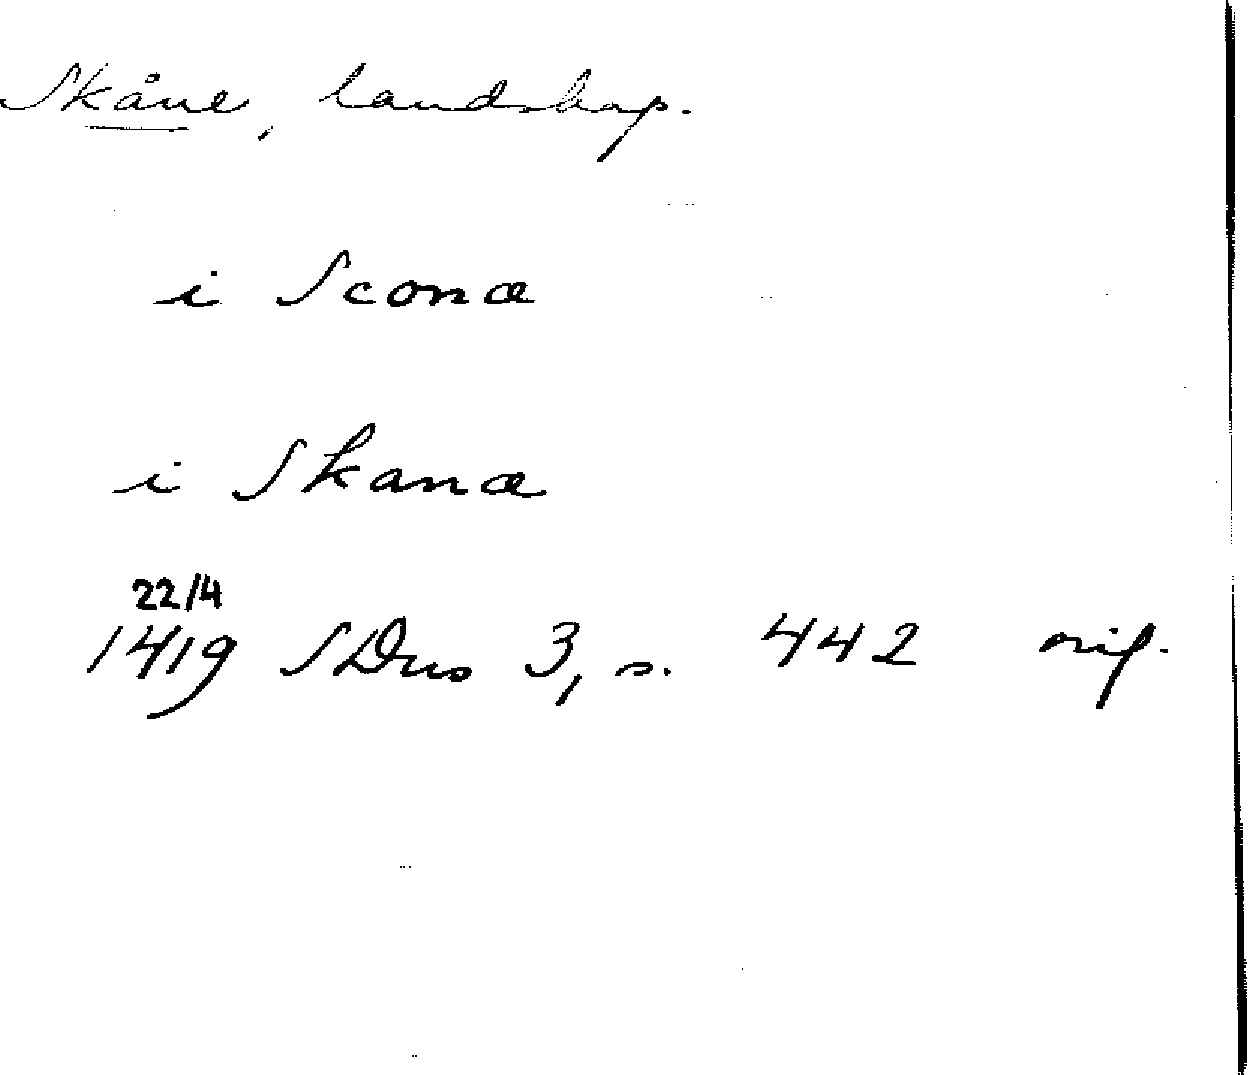 Skåne, landskap.
i Sconæ
i Skanæ
22/4
1419 SDns 3, s. 442 orig.